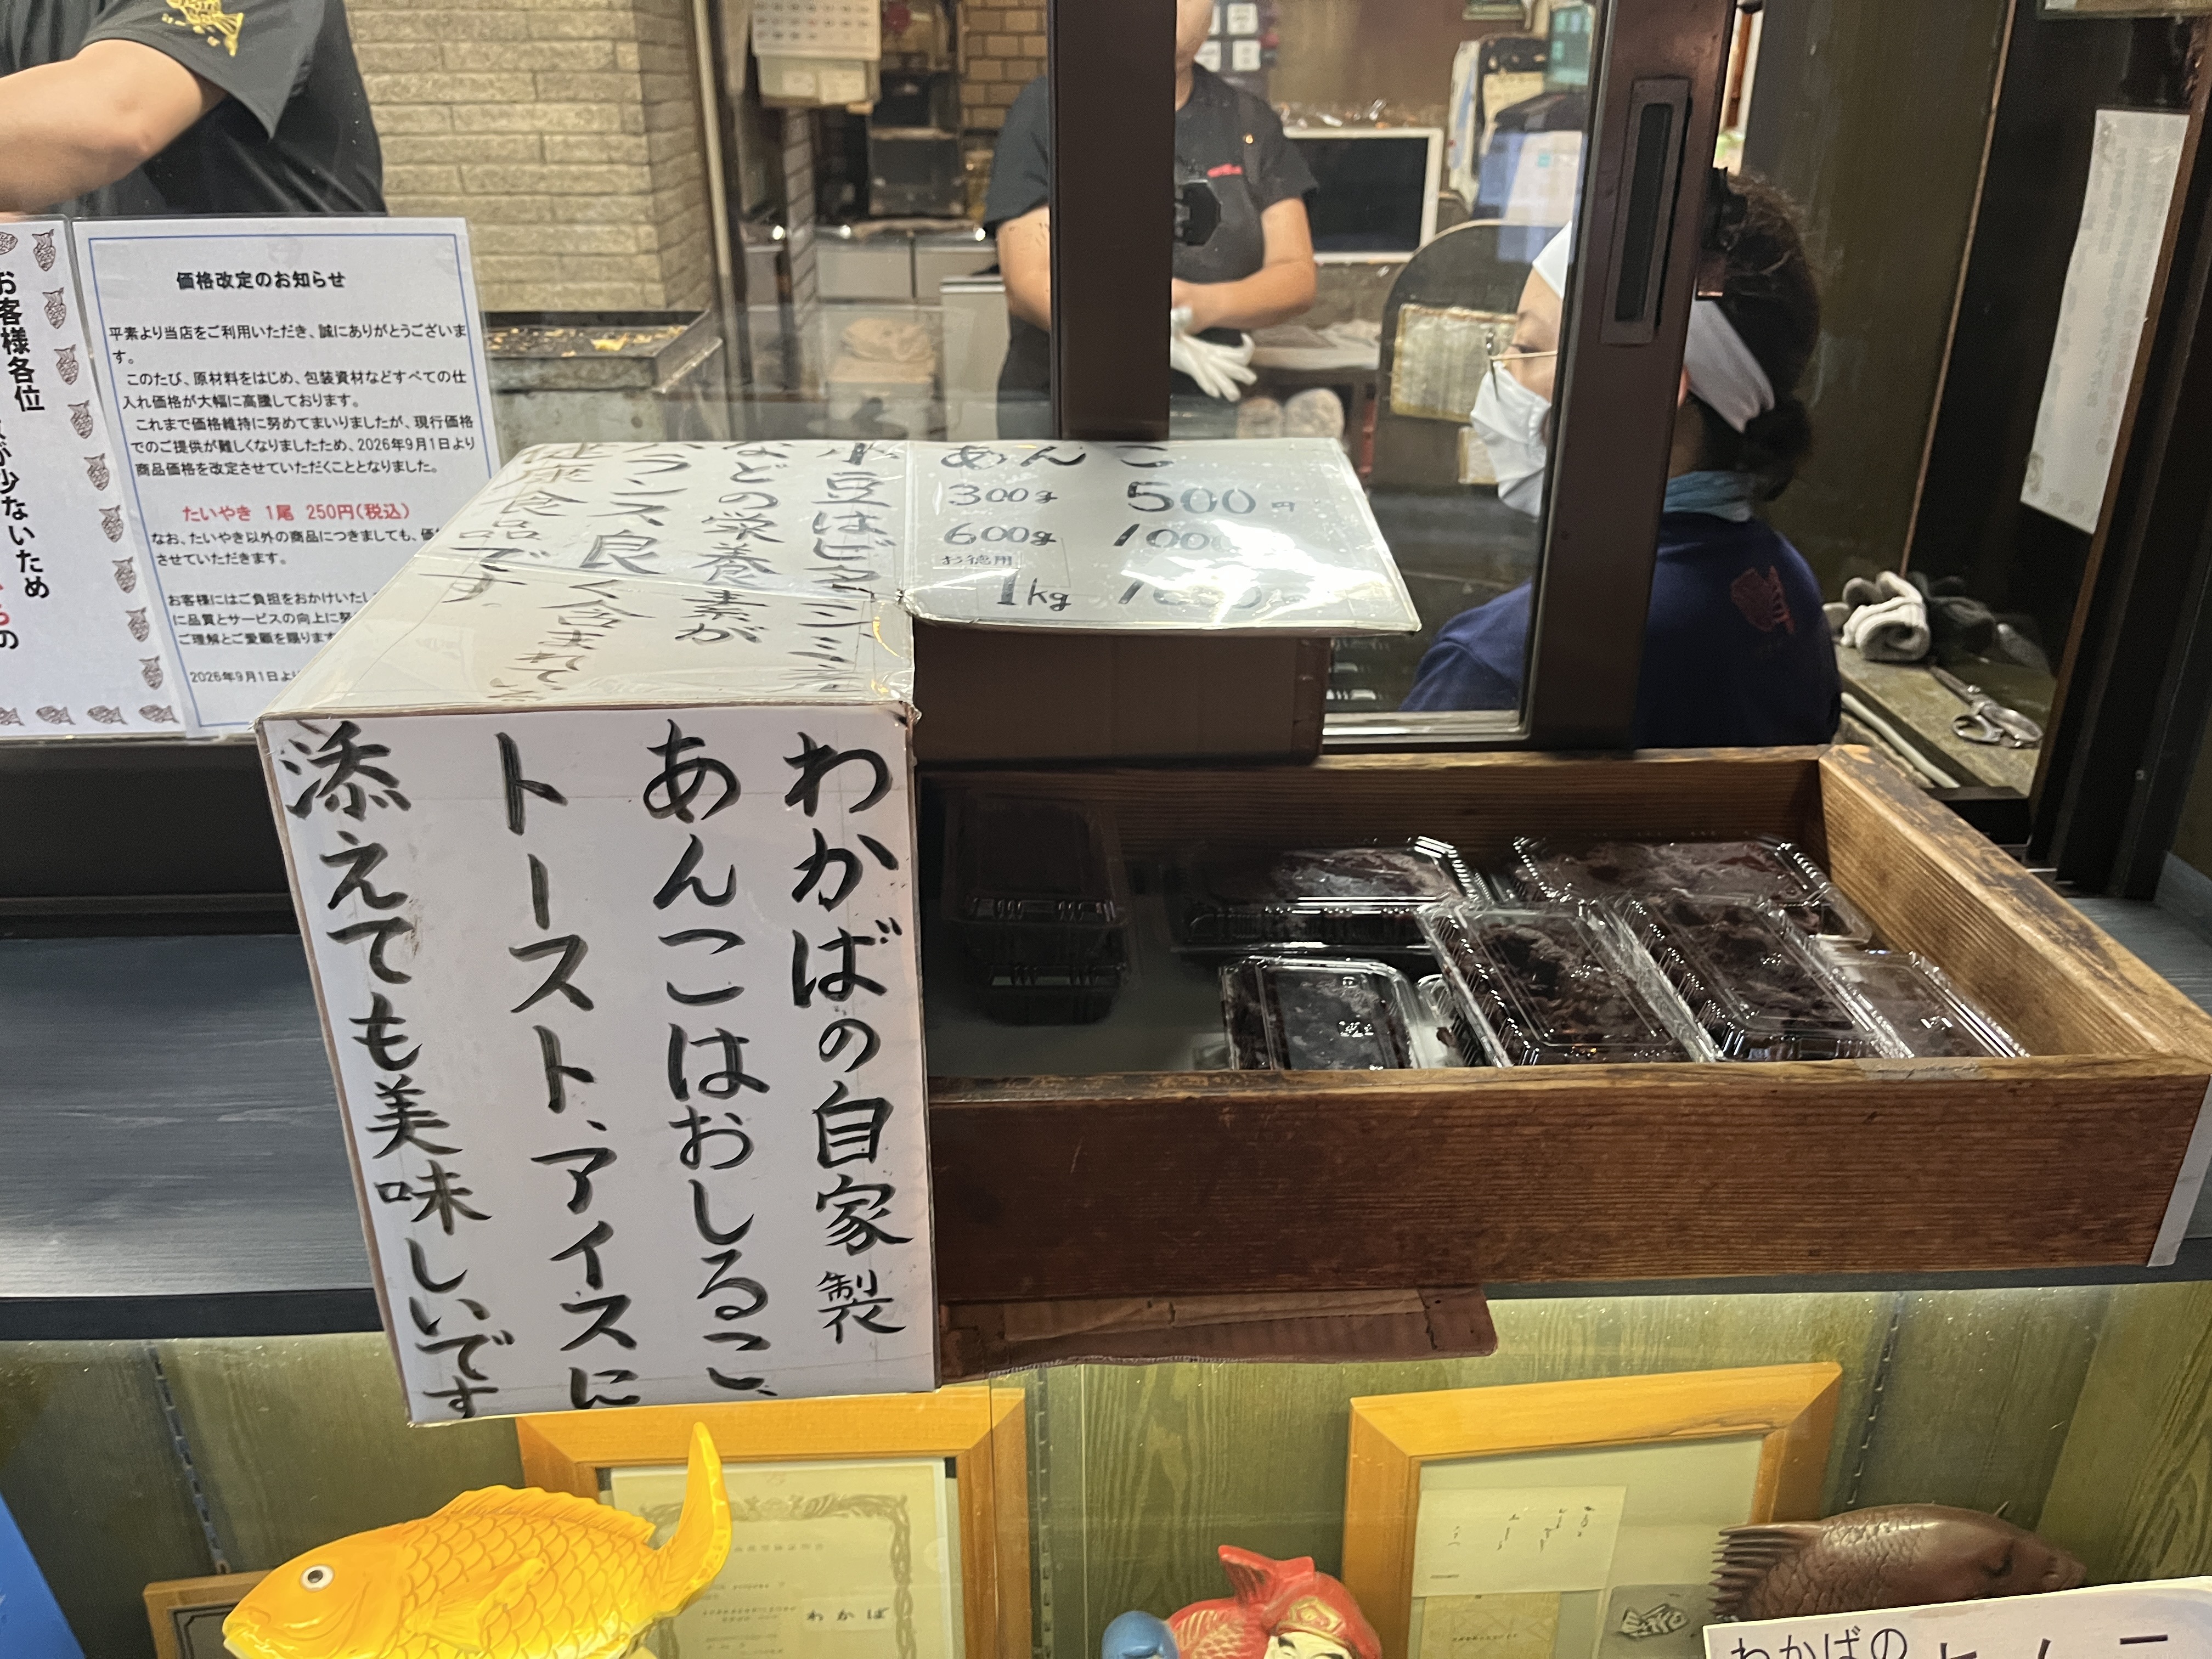 お客様各位
が少ないため
価格改定のお知らせ
平素より当店をご利用いただき、誠にありがとうございま
す。
このたび、原材料をはじめ、包装資材などすべての仕
入れ価格が大幅に高騰しております。
これまで価格維持に努めてまいりましたが、現行価格
でのご提供が難しくなりましたため、2026年9月1日より
商品価格を改定させていただくこととなりました。
たいやき 1尾 250円(税込)
なお、たいやき以外の商品につきましても、価
させていただきます。
お客様にはご負担をおかけいたし
に品質とサービスの向上に努
ご理解とご愛顧を賜ります
2026年9月1日より
小豆はビタミン
などの栄養素が
バランス良く含まれて
健康食品です。
あんこ
300g 500円
600g 1000
お徳用
1kg
わかばの自家製
あんこはおしるこ、
トースト、アイスに
添えても美味しいです
わかば
わかばの